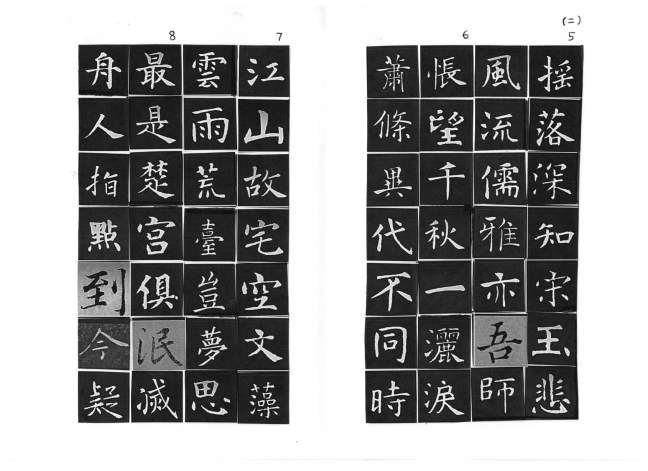 (二)
5
搖落深知宋玉悲
風流儒雅亦吾師
6
悵望千秋一灑淚
蕭條異代不同時
7
江山故宅空文藻
雲雨荒臺豈夢思
8
最是楚宮俱泯滅
舟人指點到今疑